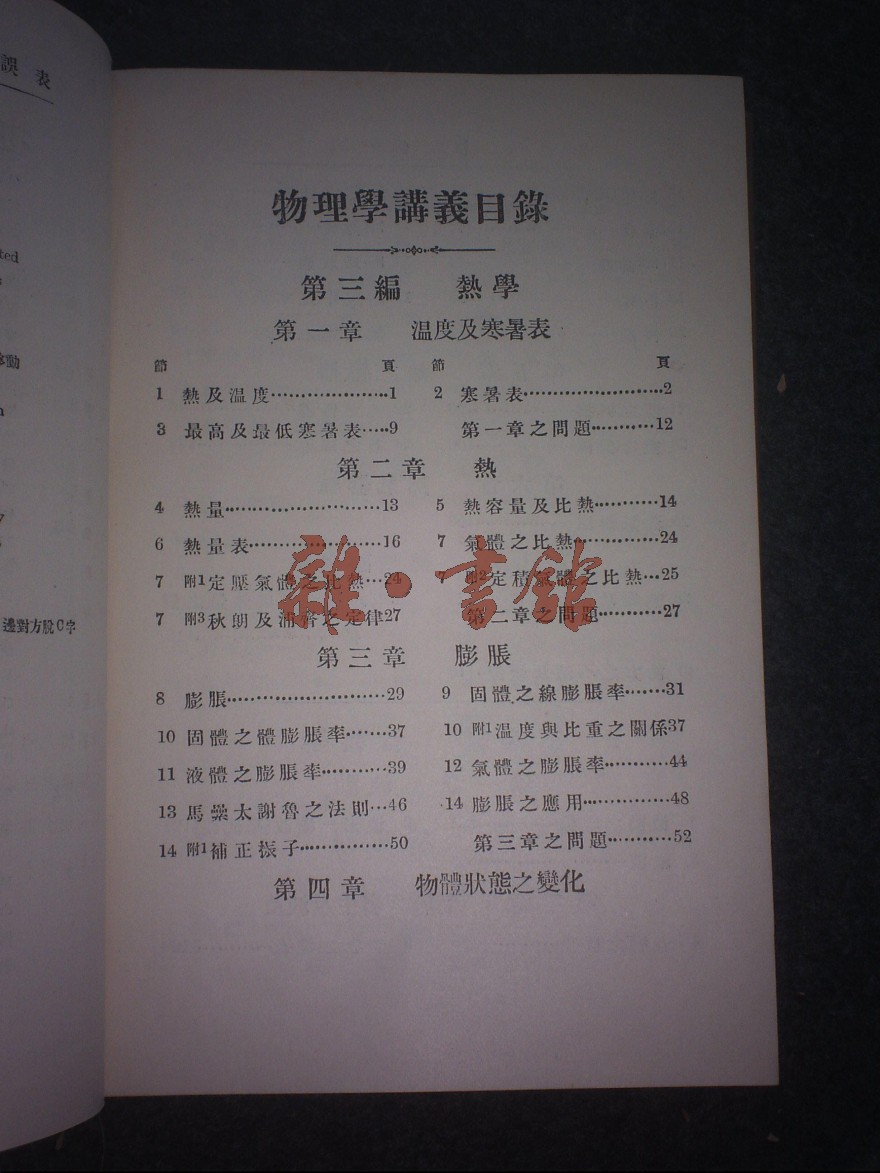 誤表
ted
移動
邊對方脫C字
物理學講義目錄
第三編 熱學
第一章 温度及寒暑表
節 頁 節 頁
1 熱及温度…………………1 2 寒暑表……………………2
3 最高及最低寒暑表……9 第一章之問題…………12
第二章 熱
4 熱量……………………13 5 熱容量及比熱…………14
6 熱量表…………………16 7 氣體之比熱……………24
7 附1定壓氣體之比熱…24 7 附2定積氣體之比熱…25
7 附3秋朗及浦齊之定律27 第二章之問題…………27
第三章 膨脹
8 膨脹……………………29 9 固體之線膨脹率………31
10 固體之體膨脹率………37 10 附1温度與比重之關係37
11 液體之膨脹率…………39 12 氣體之膨脹率…………44
13 馬藥太謝魯之法則…46 14 膨脹之應用……………48
14 附1補正振子……………50 第三章之問題…………52
第四章 物體狀態之變化
雜·書館